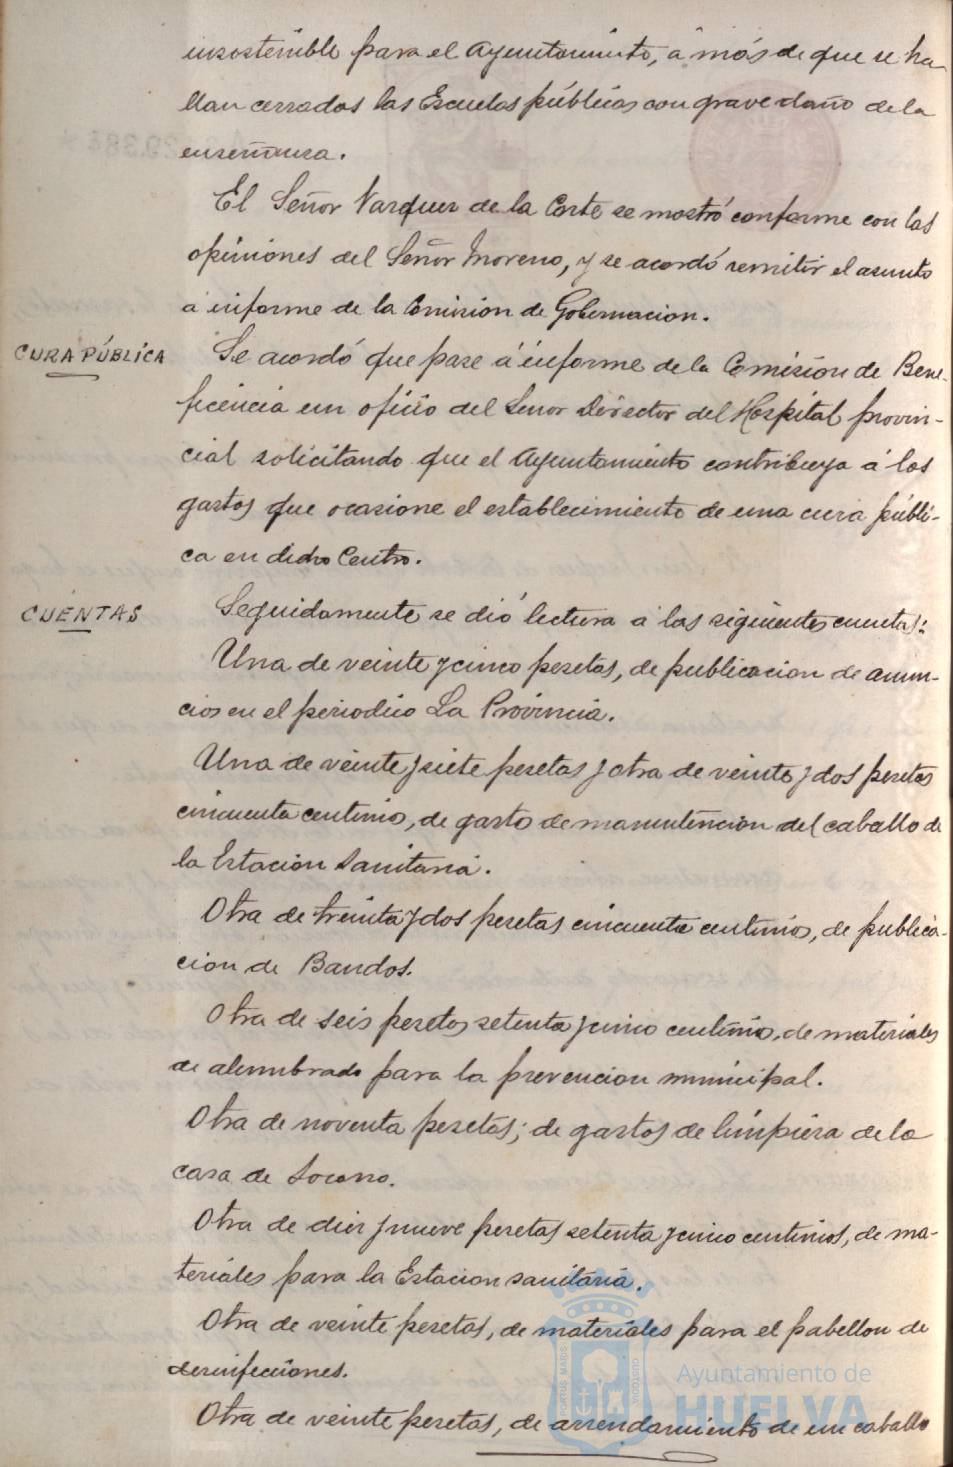 insostenible para el Ayuntamiento, á más de que se ha
llan cerradas las Escuelas públicas con grave daño de la
enseñanza.
El Señor Vazquez de la Corte se mostró conforme con las
opiniones del Señor Moreno, y se acordó remitir el asunto
a informe de la Comision de Gobernacion.
CURA PÚBLICA
Se acordó que pase á informe de la Comisión de Bene-
ficencia un oficio del Señor Director del Hospital provin-
cial solicitando que el Ayuntamiento contribuya á los
gastos que ocasione el establecimiento de una cura públi-
ca en dicho Centro.
CUENTAS
Seguidamente se dió lectura a las siguientes cuentas:
Una de veinte y cinco pesetas, de publicacion de anun-
cios en el periodico La Provincia.
Una de veinte y siete pesetas y otra de veinte y dos pesetas
cincuenta centimos, de gasto de manutencion del caballo de
la Estacion Sanitaria.
Otra de treinta y dos pesetas cincuenta centimos, de publica-
cion de Bandos.
Otra de seis pesetas setenta y cinco centimos, de materiales
de alumbrado para la prevencion municipal.
Otra de noventa pesetas; de gastos de limpieza de la
casa de Socorro.
Otra de diez y nueve pesetas setenta y cinco centimos, de ma-
teriales para la Estacion sanitaria.
Otra de veinte pesetas, de materiales para el pabellon de
desinfecciones.
Otra de veinte pesetas, de arrendamiento de un caballo
PORTUS MARIS
CUSTODIA
Ayuntamiento de
HUELVA